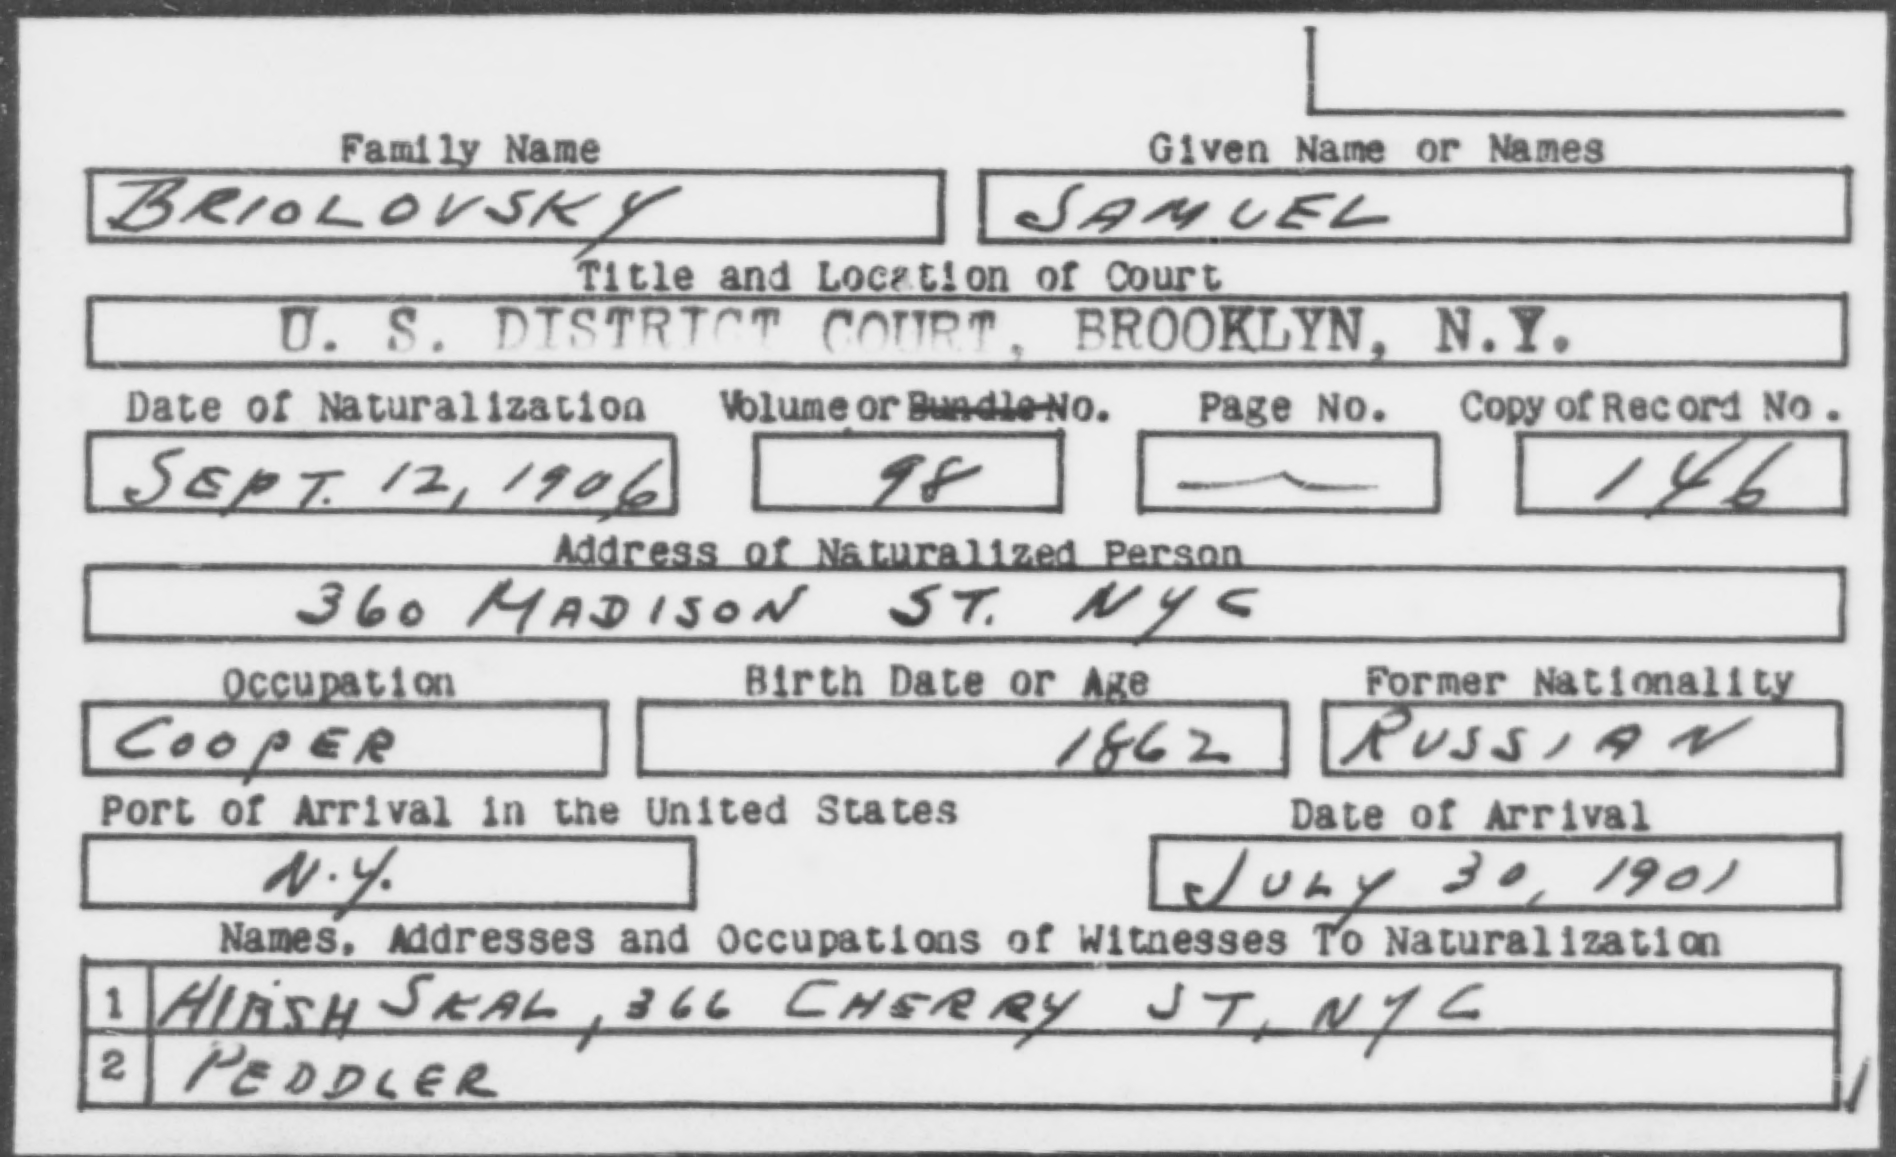 Family Name Given Name or Names
BRIOLOVSKY SAMUEL
Title and Location of Court
U. S. DISTRICT COURT, BROOKLYN, N.Y.
Date of Naturalization Volume or Bundle No. Page No. Copy of Record No.
SEPT. 12, 1906 98 — 146
Address of Naturalized Person
360 MADISON ST. NYC
Occupation Birth Date or Age Former Nationality
COOPER 1862 RUSSIAN
Port of Arrival in the United States Date of Arrival
N.Y. JULY 30, 1901
Names, Addresses and Occupations of Witnesses To Naturalization
1 HIRSH SKAL, 366 CHERRY ST, NYC
2 PEDDLER